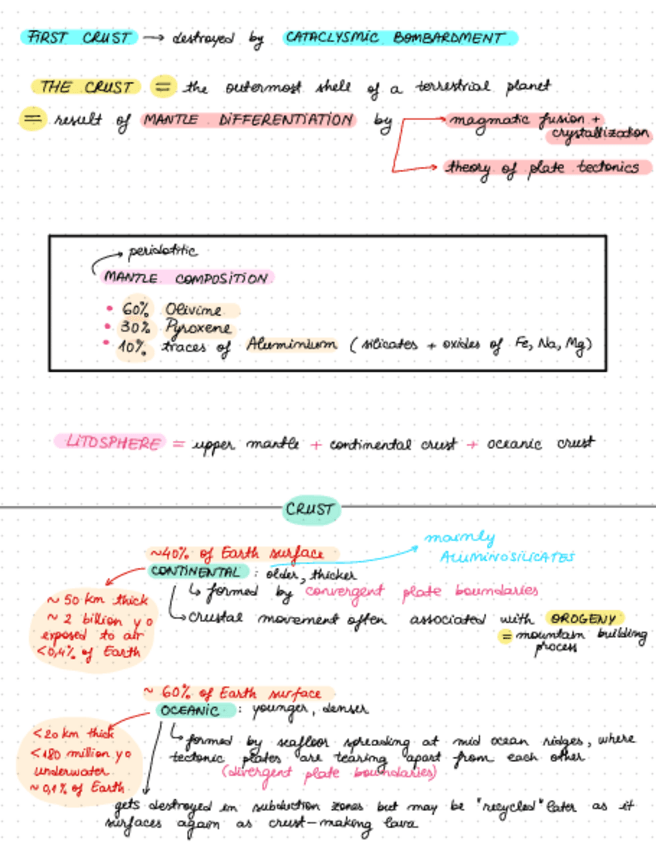 FIRST CRUST → destroyed by CATACLYSMIC BOMBARDMENT
THE CRUST = the outermost shell of a terrestrial planet
= result of MANTLE DIFFERENTIATION by → magmatic fusion +
crystallization
→ theory of plate tectonics
→ peridotitic
MANTLE COMPOSITION
• 60% Olivine
• 30% Pyroxene
• 10% traces of Aluminium (silicates + oxides of Fe, Na, Mg)
LITOSPHERE = upper mantle + continental crust + oceanic crust
CRUST
mainly
ALUMINOSILICATES
~40% of Earth surface
CONTINENTAL : older, thicker
↳ formed by convergent plate boundaries
↳ crustal movement often associated with OROGENY
= mountain building
process
~ 50 km thick
~ 2 billion y o
exposed to air
<0,4% of Earth
~ 60% of Earth surface
OCEANIC : younger, denser
↳ formed by seafloor spreading at mid ocean ridges, where
tectonic plates are tearing apart from each other
(divergent plate boundaries)
<20 km thick
<180 million yo
underwater
~ 0,1% of Earth
gets destroyed in subduction zones but may be "recycled" later as it
surfaces again as crust-making lava